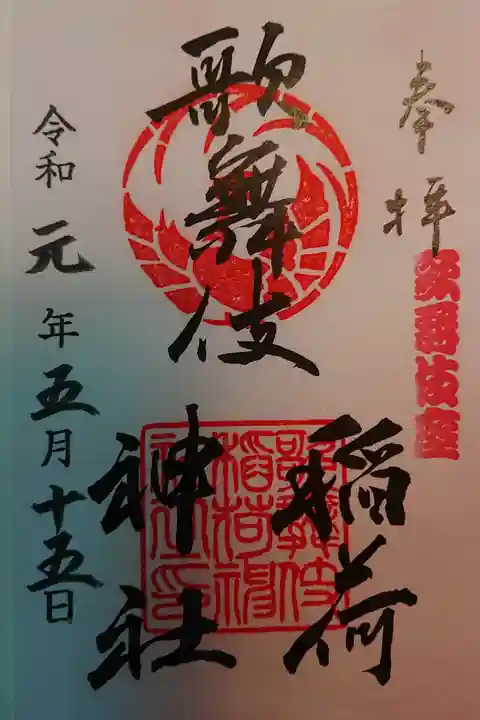 奉拝
歌舞伎座
歌舞伎
稲荷
神社
歌舞伎
稲荷神
社之印
令和元年五月十五日